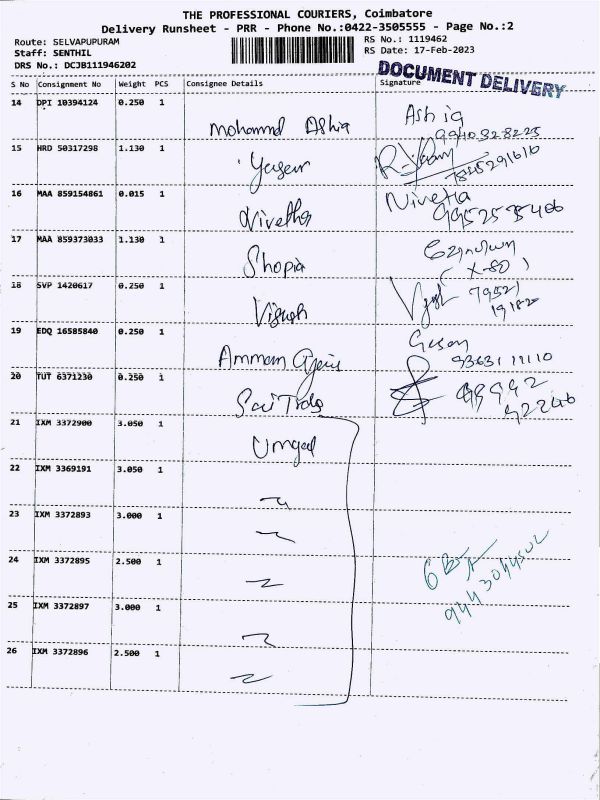 THE PROFESSIONAL COURIERS, Coimbatore
Delivery Runsheet - PRR - Phone No.:0422-3505555 - Page No.:2
Route: SELVAPUPURAM
Staff: SENTHIL
DRS No.: DCJB111946202
RS No.: 1119462
RS Date: 17-Feb-2023
DOCUMENT DELIVERY
S No Consignment No Weight PCS Consignee Details Signature
14 DPI 10394124 0.250 1
Mohammd Ashiq Ashiq
9940328225
15 HRD 50317298 1.130 1
Yaseen
7845291616
16 MAA 859154861 0.015 1
Nivetha Nivetha
17 MAA 859373033 1.130 1
Shopia
18 SVP 1420617 0.250 1
19 EDQ 16585840 0.250 1
Ammam
93631 11110
20 TUT 6371230 0.250 1
Sai Trads
21 IXM 3372900 3.050 1
22 IXM 3369191 3.050 1
23 IXM 3372893 3.000 1
24 IXM 3372895 2.500 1
25 IXM 3372897 3.000 1
26 IXM 3372896 2.500 1